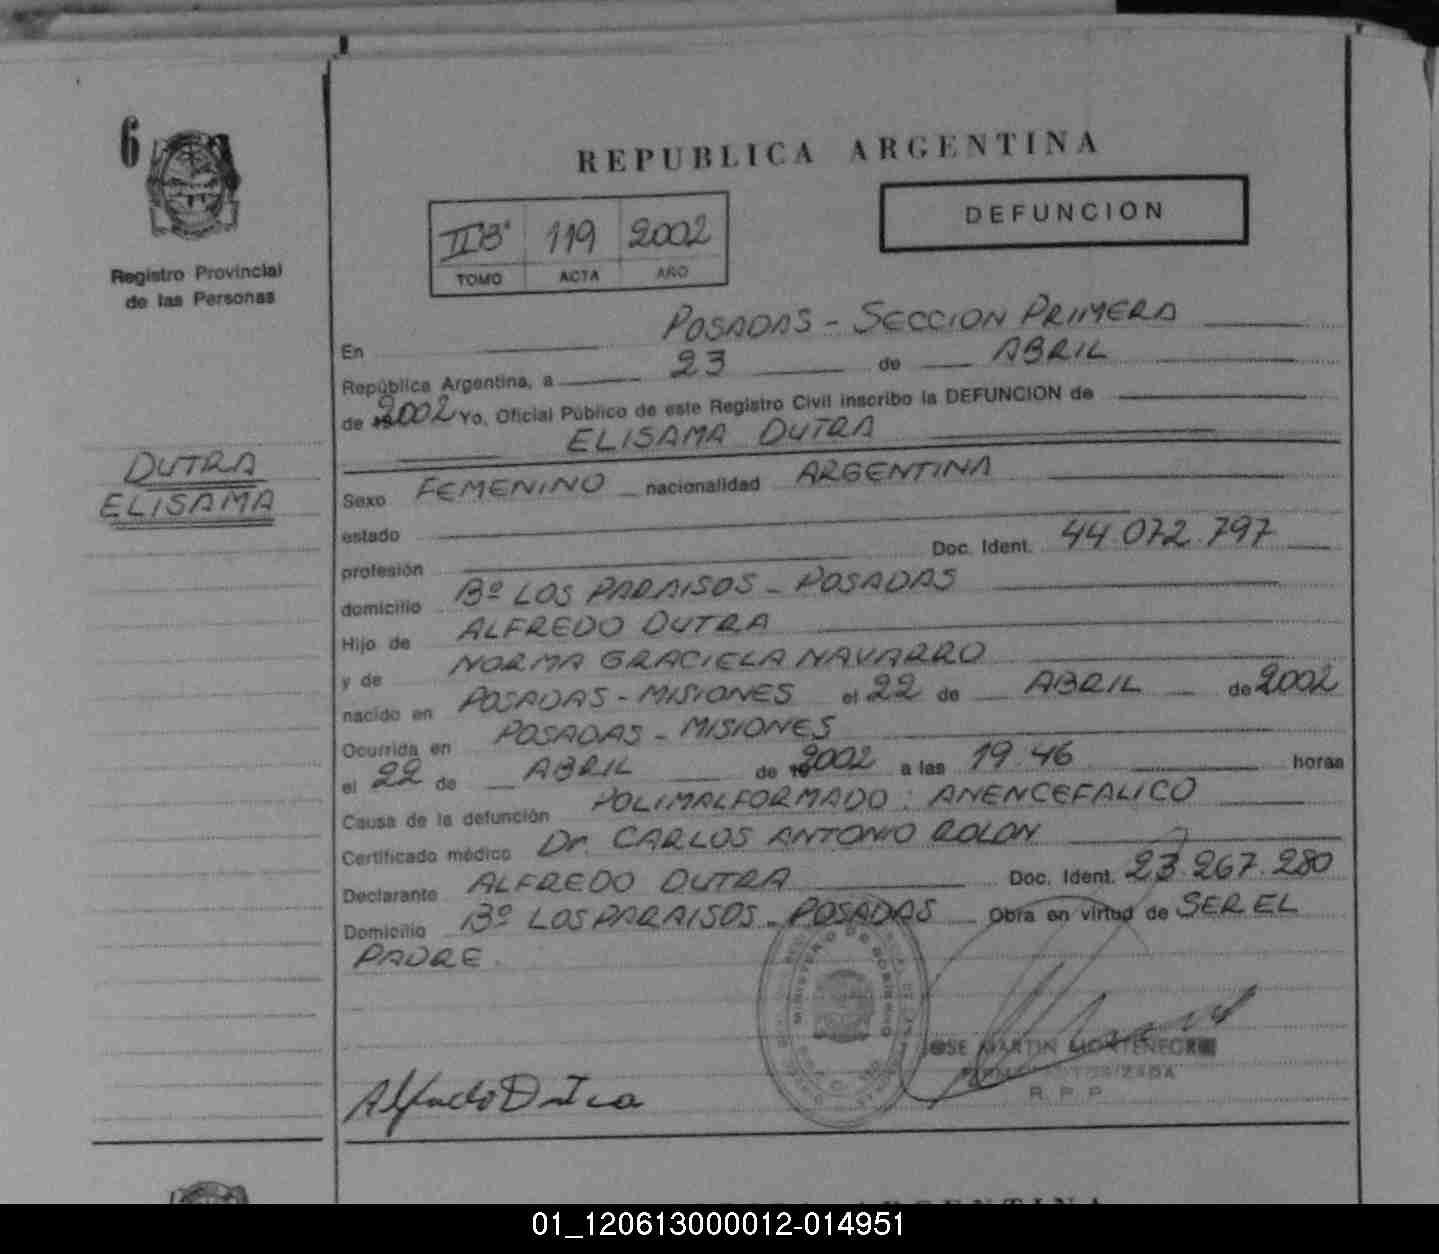 6
Registro Provincial
de las Personas
DUTRA
ELISAMA
REPUBLICA ARGENTINA
DEFUNCION
IIBº 119 2002
TOMO ACTA AÑO
En POSADAS - SECCION PRIMERA
República Argentina, a 23 de ABRIL
de 2002 Yo, Oficial Público de este Registro Civil inscribo la DEFUNCION de
ELISAMA DUTRA
Sexo FEMENINO nacionalidad ARGENTINA
estado
profesión Doc. Ident. 44.072.797
domicilio Bº LOS PARAISOS - POSADAS
Hijo de ALFREDO DUTRA
y de NORMA GRACIELA NAVARRO
nacido en POSADAS - MISIONES el 22 de ABRIL de 2002
Ocurrida en POSADAS - MISIONES
el 22 de ABRIL de 2002 a las 19.46 horas
Causa de la defunción POLIMALFORMADO: ANENCEFALICO
Certificado médico Dr. CARLOS ANTONIO ROLON
Declarante ALFREDO DUTRA Doc. Ident. 23.267.280
Domicilio Bº LOS PARAISOS - POSADAS Obra en virtud de SER EL
PADRE.
MINISTERIO DE GOBIERNO
JOSE MARTIN MONTENEGRO
R. P. P.
Alfredo Dutra
01_120613000012-014951